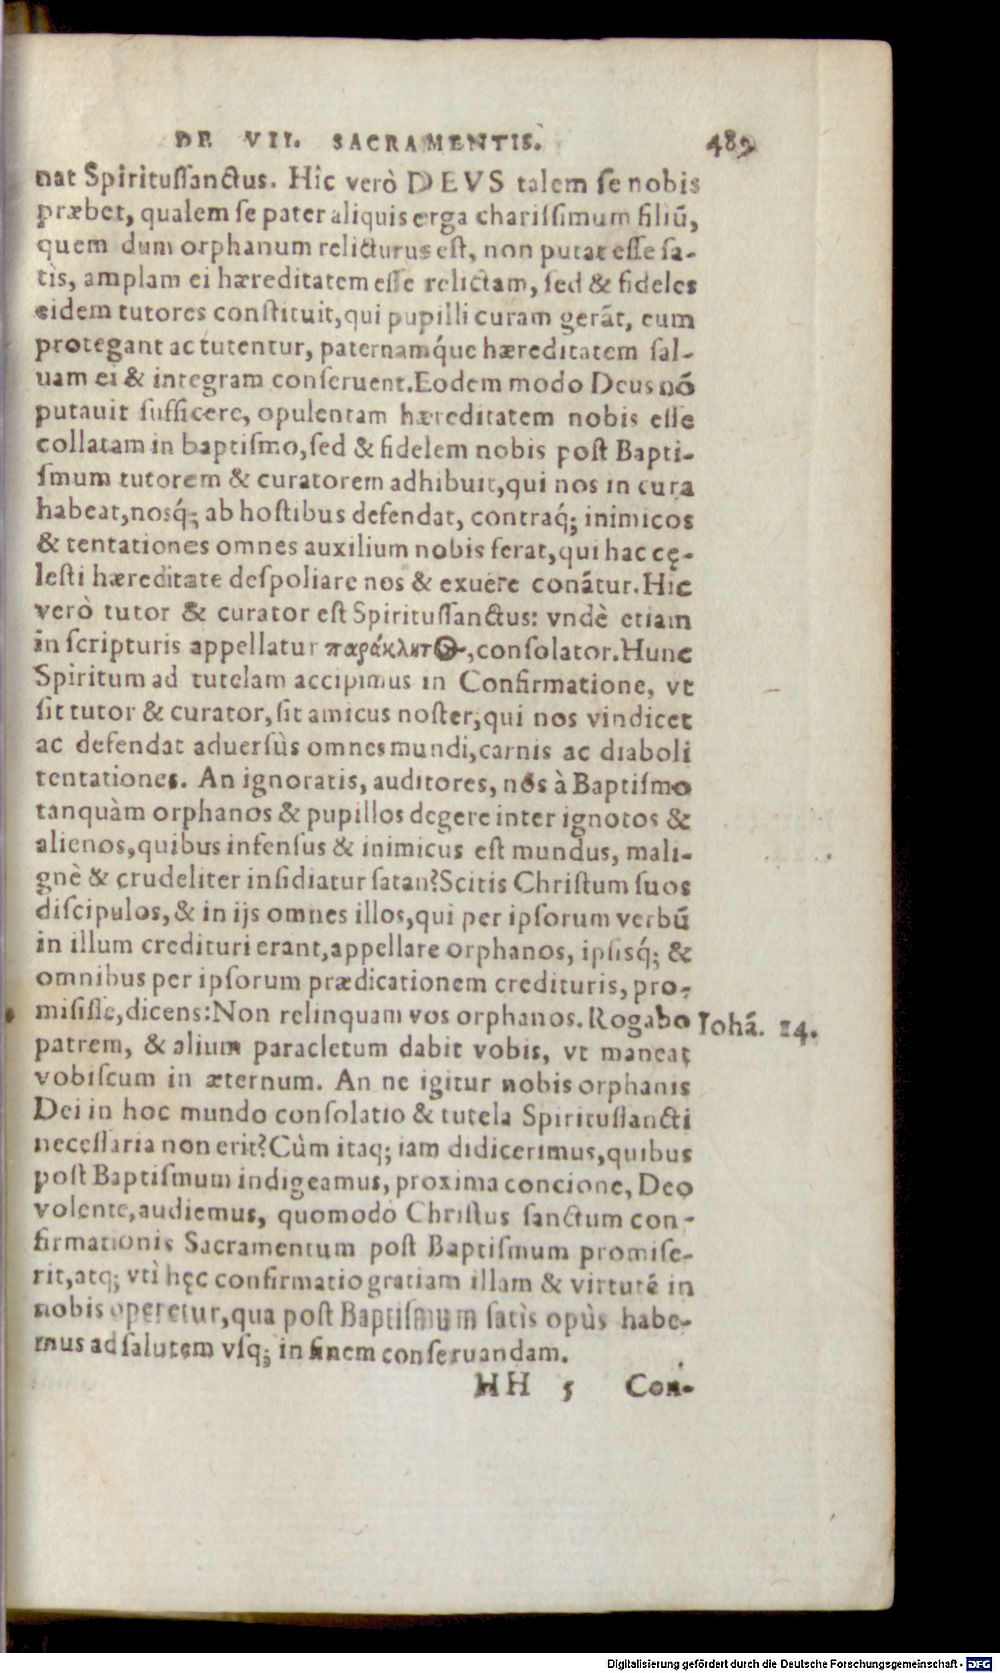 DE VII. SACRAMENTIS. 489
nat Spiritussanctus. Hîc verò DEVS talem se nobis
præbet, qualem se pater aliquis erga charissimum filiū,
quem dum orphanum relicturus est, non putat esse sa-
tis, amplam ei hæreditatem esse relictam, sed & fideles
eidem tutores constituit, qui pupilli curam gerāt, eum
protegant ac tutentur, paternamq́ue hæreditatem sal-
uam ei & integram conseruent. Eodem modo Deus nō
putauit sufficere, opulentam hæreditatem nobis esse
collatam in baptismo, sed & fidelem nobis post Bapti-
smum tutorem & curatorem adhibuit, qui nos in cura
habeat, nosq́; ab hostibus defendat, contraq́; inimicos
& tentationes omnes auxilium nobis ferat, qui hac cę-
lesti hæreditate despoliare nos & exuere conātur. Hic
verò tutor & curator est Spiritussanctus: vndè etiam
in scripturis appellatur παράκλητος, consolator. Hunc
Spiritum ad tutelam accipimus in Confirmatione, vt
sit tutor & curator, sit amicus noster, qui nos vindicet
ac defendat aduersùs omnes mundi, carnis ac diaboli
tentationes. An ignoratis, auditores, nos à Baptismo
tanquàm orphanos & pupillos degere inter ignotos &
alienos, quibus infensus & inimicus est mundus, mali-
gnè & crudeliter insidiatur satan? Scitis Christum suos
discipulos, & in ijs omnes illos, qui per ipsorum verbū
in illum credituri erant, appellare orphanos, ipsisq́; &
omnibus per ipsorum prædicationem credituris, pro-
misisse, dicens: Non relinquam vos orphanos. Rogabo Iohā. 14.
patrem, & alium paracletum dabit vobis, vt maneat
vobiscum in æternum. An ne igitur nobis orphanis
Dei in hoc mundo consolatio & tutela Spiritussancti
necessaria non erit? Cùm itaq; iam didicerimus, quibus
post Baptismum indigeamus, proxima concione, Deo
volente, audiemus, quomodò Christus sanctum con-
firmationis Sacramentum post Baptismum promise-
rit, atq; vtì hęc confirmatio gratiam illam & virtutē in
nobis operetur, qua post Baptismum satis opùs habe-
mus ad salutem vsq; in finem conseruandam.
HH 5 Con-
Digitalisierung gefördert durch die Deutsche Forschungsgemeinschaft - DFG